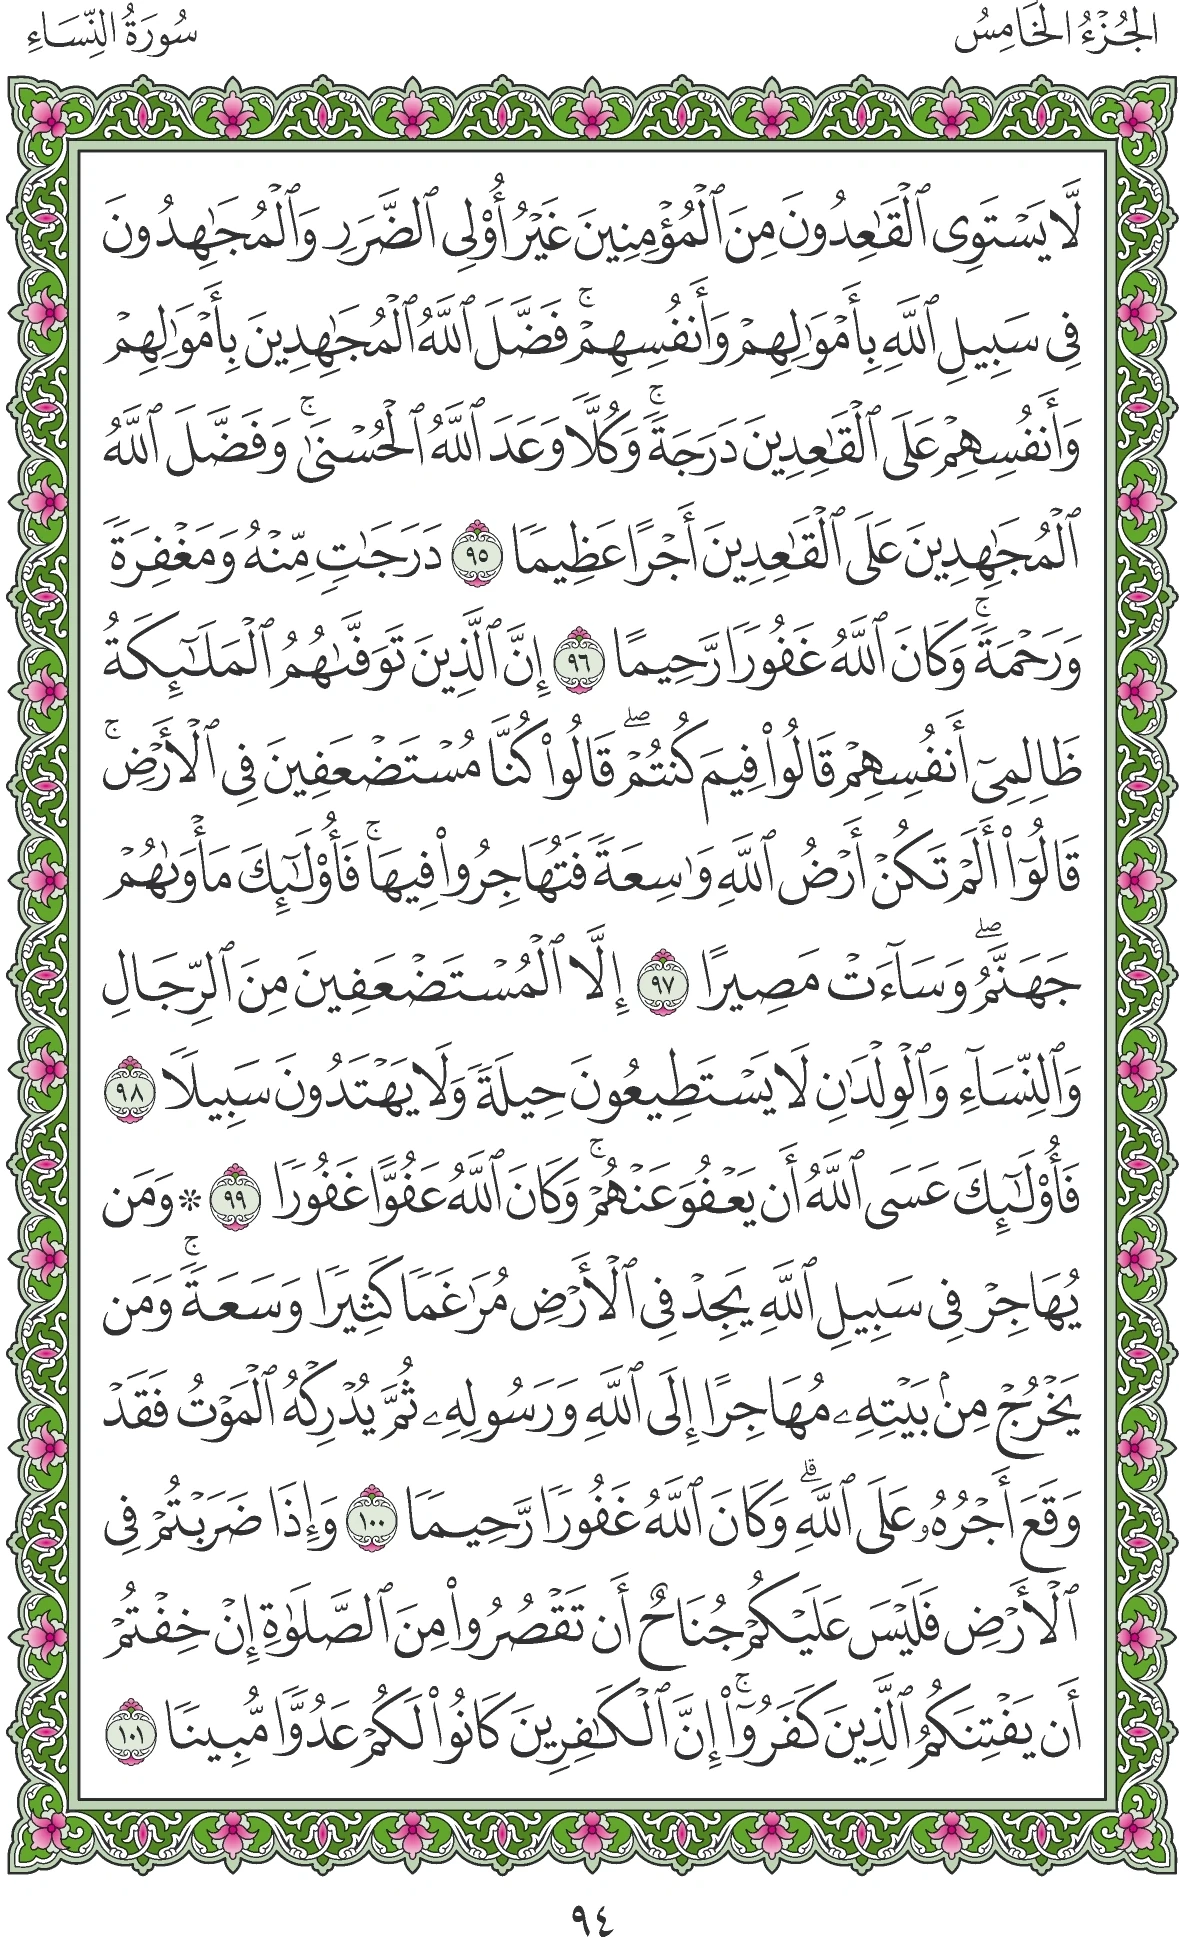 الجُزْءُ الخَامِسُ
سُورَةُ النِّسَاءِ
لَّا يَسْتَوِى ٱلْقَٰعِدُونَ مِنَ ٱلْمُؤْمِنِينَ غَيْرُ أُو۟لِى ٱلضَّرَرِ وَٱلْمُجَٰهِدُونَ
فِى سَبِيلِ ٱللَّهِ بِأَمْوَٰلِهِمْ وَأَنفُسِهِمْ ۚ فَضَّلَ ٱللَّهُ ٱلْمُجَٰهِدِينَ بِأَمْوَٰلِهِمْ
وَأَنفُسِهِمْ عَلَى ٱلْقَٰعِدِينَ دَرَجَةً ۚ وَكُلًّا وَعَدَ ٱللَّهُ ٱلْحُسْنَىٰ ۚ وَفَضَّلَ ٱللَّهُ
ٱلْمُجَٰهِدِينَ عَلَى ٱلْقَٰعِدِينَ أَجْرًا عَظِيمًا ٩٥ دَرَجَٰتٍ مِّنْهُ وَمَغْفِرَةً
وَرَحْمَةً ۚ وَكَانَ ٱللَّهُ غَفُورًا رَّحِيمًا ٩٦ إِنَّ ٱلَّذِينَ تَوَفَّىٰهُمُ ٱلْمَلَٰٓئِكَةُ
ظَالِمِىٓ أَنفُسِهِمْ قَالُوا۟ فِيمَ كُنتُمْ ۖ قَالُوا۟ كُنَّا مُسْتَضْعَفِينَ فِى ٱلْأَرْضِ ۚ
قَالُوٓا۟ أَلَمْ تَكُنْ أَرْضُ ٱللَّهِ وَٰسِعَةً فَتُهَاجِرُوا۟ فِيهَا ۚ فَأُو۟لَٰٓئِكَ مَأْوَىٰهُمْ
جَهَنَّمُ ۖ وَسَآءَتْ مَصِيرًا ٩٧ إِلَّا ٱلْمُسْتَضْعَفِينَ مِنَ ٱلرِّجَالِ
وَٱلنِّسَآءِ وَٱلْوِلْدَٰنِ لَا يَسْتَطِيعُونَ حِيلَةً وَلَا يَهْتَدُونَ سَبِيلًا ٩٨
فَأُو۟لَٰٓئِكَ عَسَى ٱللَّهُ أَن يَعْفُوَ عَنْهُمْ ۚ وَكَانَ ٱللَّهُ عَفُوًّا غَفُورًا ٩٩ ۞ وَمَن
يُهَاجِرْ فِى سَبِيلِ ٱللَّهِ يَجِدْ فِى ٱلْأَرْضِ مُرَٰغَمًا كَثِيرًا وَسَعَةً ۚ وَمَن
يَخْرُجْ مِنۢ بَيْتِهِۦ مُهَاجِرًا إِلَى ٱللَّهِ وَرَسُولِهِۦ ثُمَّ يُدْرِكْهُ ٱلْمَوْتُ فَقَدْ
وَقَعَ أَجْرُهُۥ عَلَى ٱللَّهِ ۗ وَكَانَ ٱللَّهُ غَفُورًا رَّحِيمًا ١٠٠ وَإِذَا ضَرَبْتُمْ فِى
ٱلْأَرْضِ فَلَيْسَ عَلَيْكُمْ جُنَاحٌ أَن تَقْصُرُوا۟ مِنَ ٱلصَّلَوٰةِ إِنْ خِفْتُمْ
أَن يَفْتِنَكُمُ ٱلَّذِينَ كَفَرُوٓا۟ ۚ إِنَّ ٱلْكَٰفِرِينَ كَانُوا۟ لَكُمْ عَدُوًّا مُّبِينًا ١٠١
٩٤